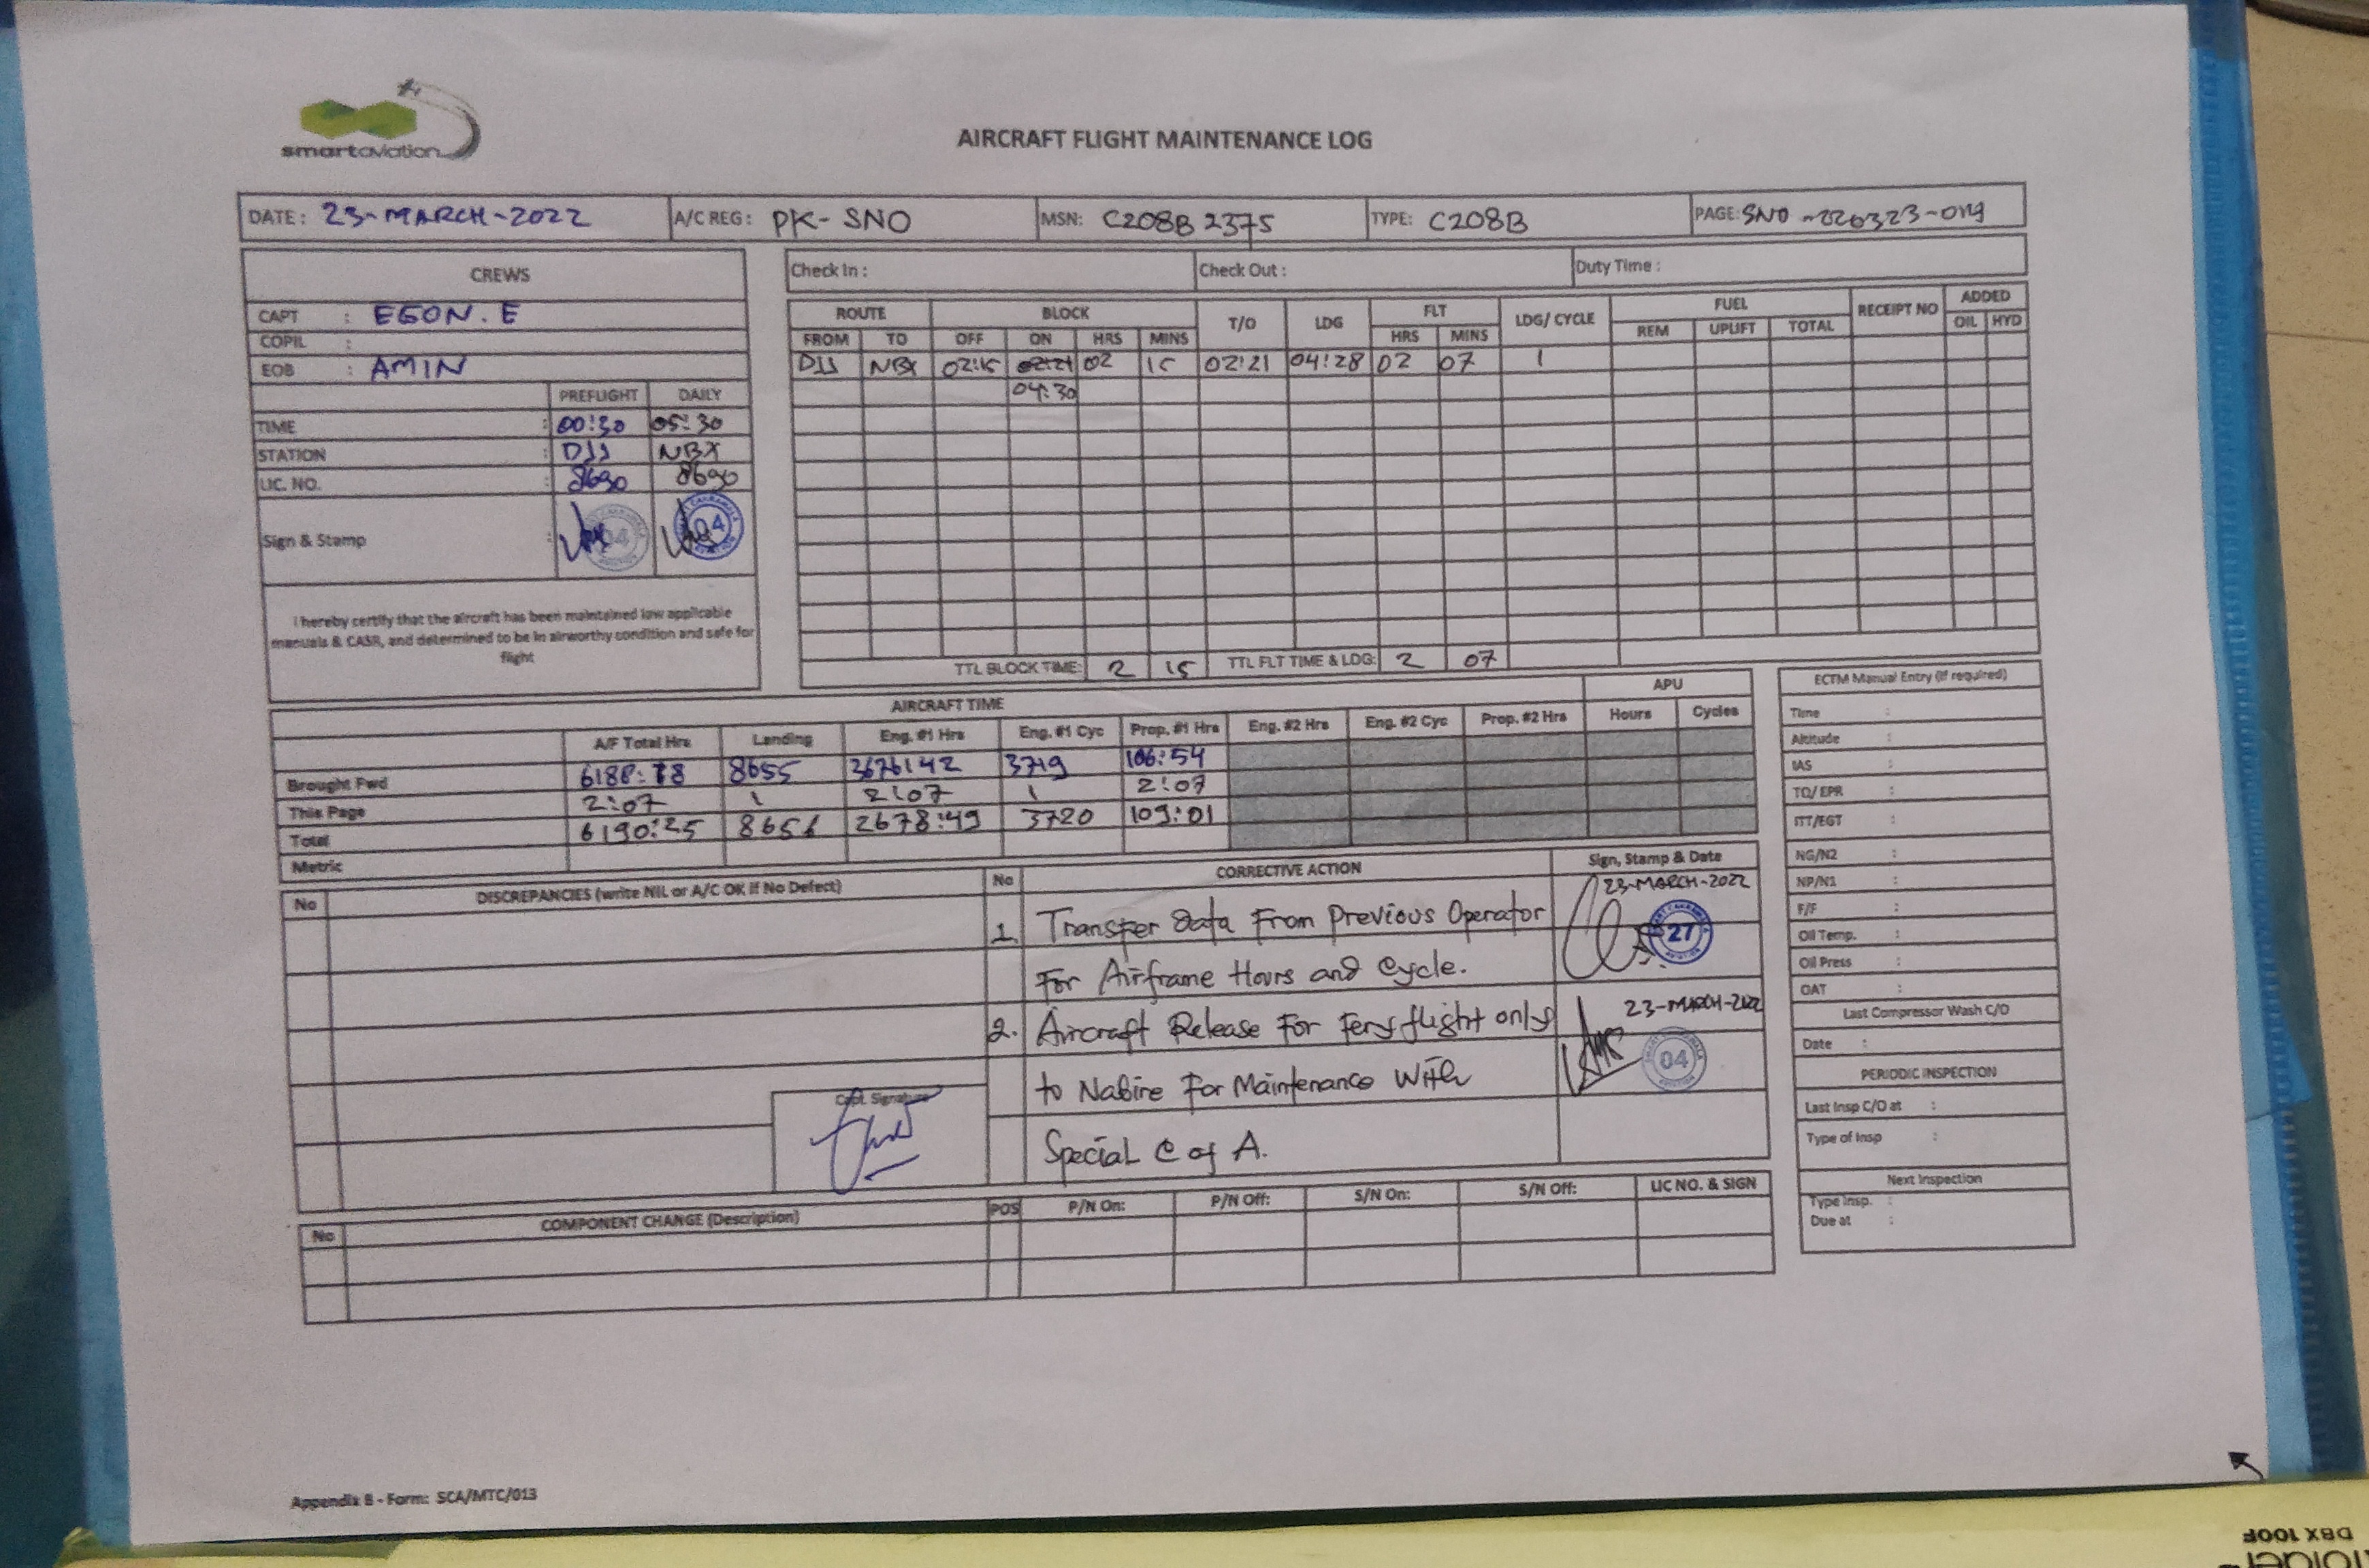 smartaviation
AIRCRAFT FLIGHT MAINTENANCE LOG
DATE : 23-MARCH-2022 A/C REG : PK-SNO MSN: C208B 2375 TYPE: C208B PAGE: SNO-220323-019
CREWS
CAPT : EGON.E
COPIL :
EOB : AMIN
PREFLIGHT DAILY
TIME : 00:30 05:30
STATION : DJJ NBX
LIC. NO. : 8690 8690
Sign & Stamp : 04 04
I hereby certify that the aircraft has been maintained iaw applicable
manuals & CASR, and determined to be in airworthy condition and safe for
flight
Check In : Check Out : Duty Time :
ROUTE BLOCK T/O LDG FLT LDG/ CYCLE FUEL RECEIPT NO ADDED
FROM TO OFF ON HRS MINS HRS MINS REM UPLIFT TOTAL OIL HYD
DJJ NBX 02:15 02:21 02 15 02:21 04:28 02 07 1
04:30
TTL BLOCK TIME: 2 15 TTL FLT TIME & LDG: 2 07
AIRCRAFT TIME APU
A/F Total Hrs Landing Eng. #1 Hrs Eng. #1 Cyc Prop. #1 Hrs Eng. #2 Hrs Eng. #2 Cyc Prop. #2 Hrs Hours Cycles
Brought Fwd 6188:18 8655 3676:42 3719 106:54
This Page 2:07 1 2:07 1 2:07
Total 6190:25 8656 2678:49 3720 109:01
Metric
No DISCREPANCIES (write NIL or A/C OK if No Defect) No CORRECTIVE ACTION Sign, Stamp & Date
1. Transfer Data From Previous Operator 23-MARCH-2022
For Airframe Hours and Cycle. 27
2. Aircraft Release For Fery flight only 23-MARCH-2022
to Nabire For Maintenance With 04
Special C of A.
Capt. Signature
No COMPONENT CHANGE (Description) POS P/N On: P/N Off: S/N On: S/N Off: LIC NO. & SIGN
ECTM Manual Entry (if required)
Time :
Altitude :
IAS :
TQ/ EPR :
ITT/EGT :
NG/N2 :
NP/N1 :
F/F :
Oil Temp. :
Oil Press :
OAT :
Last Compressor Wash C/O
Date :
PERIODIC INSPECTION
Last Insp C/O at :
Type of Insp :
Next Inspection
Type Insp. :
Due at :
Appendix B - Form: SCA/MTC/013
DBX 100F